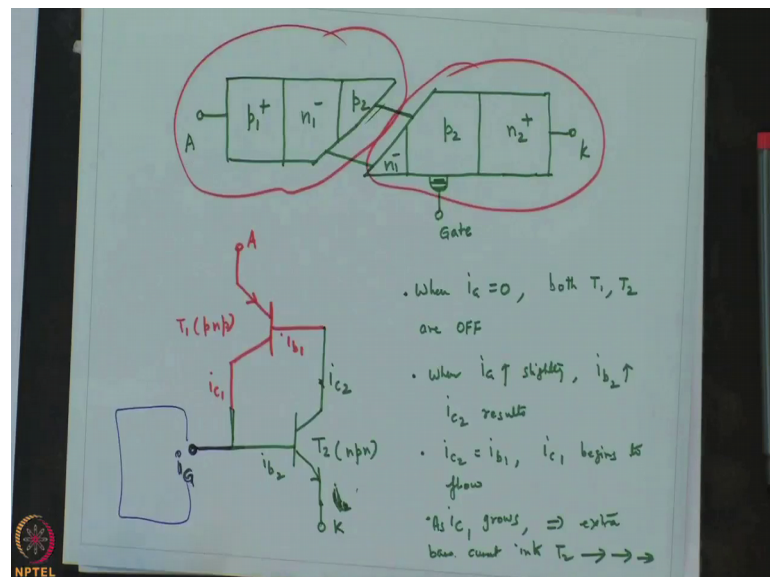 p₁⁺ n₁⁻ p₂
A
n₁⁻ p₂ n₂⁺
K
Gate
A
T₁ (pnp)
i_b₁
i_c₁
i_c₂
i_G
i_b₂
T₂ (npn)
K
• When i_G = 0, both T₁, T₂
are OFF
• When i_G ↑ slightly, i_b₂ ↑
i_c₂ results
• i_c₂ = i_b₁, i_c₁ begins to
flow
• As i_c₁ grows, ⇒ extra
base current into T₂ → → →
NPTEL